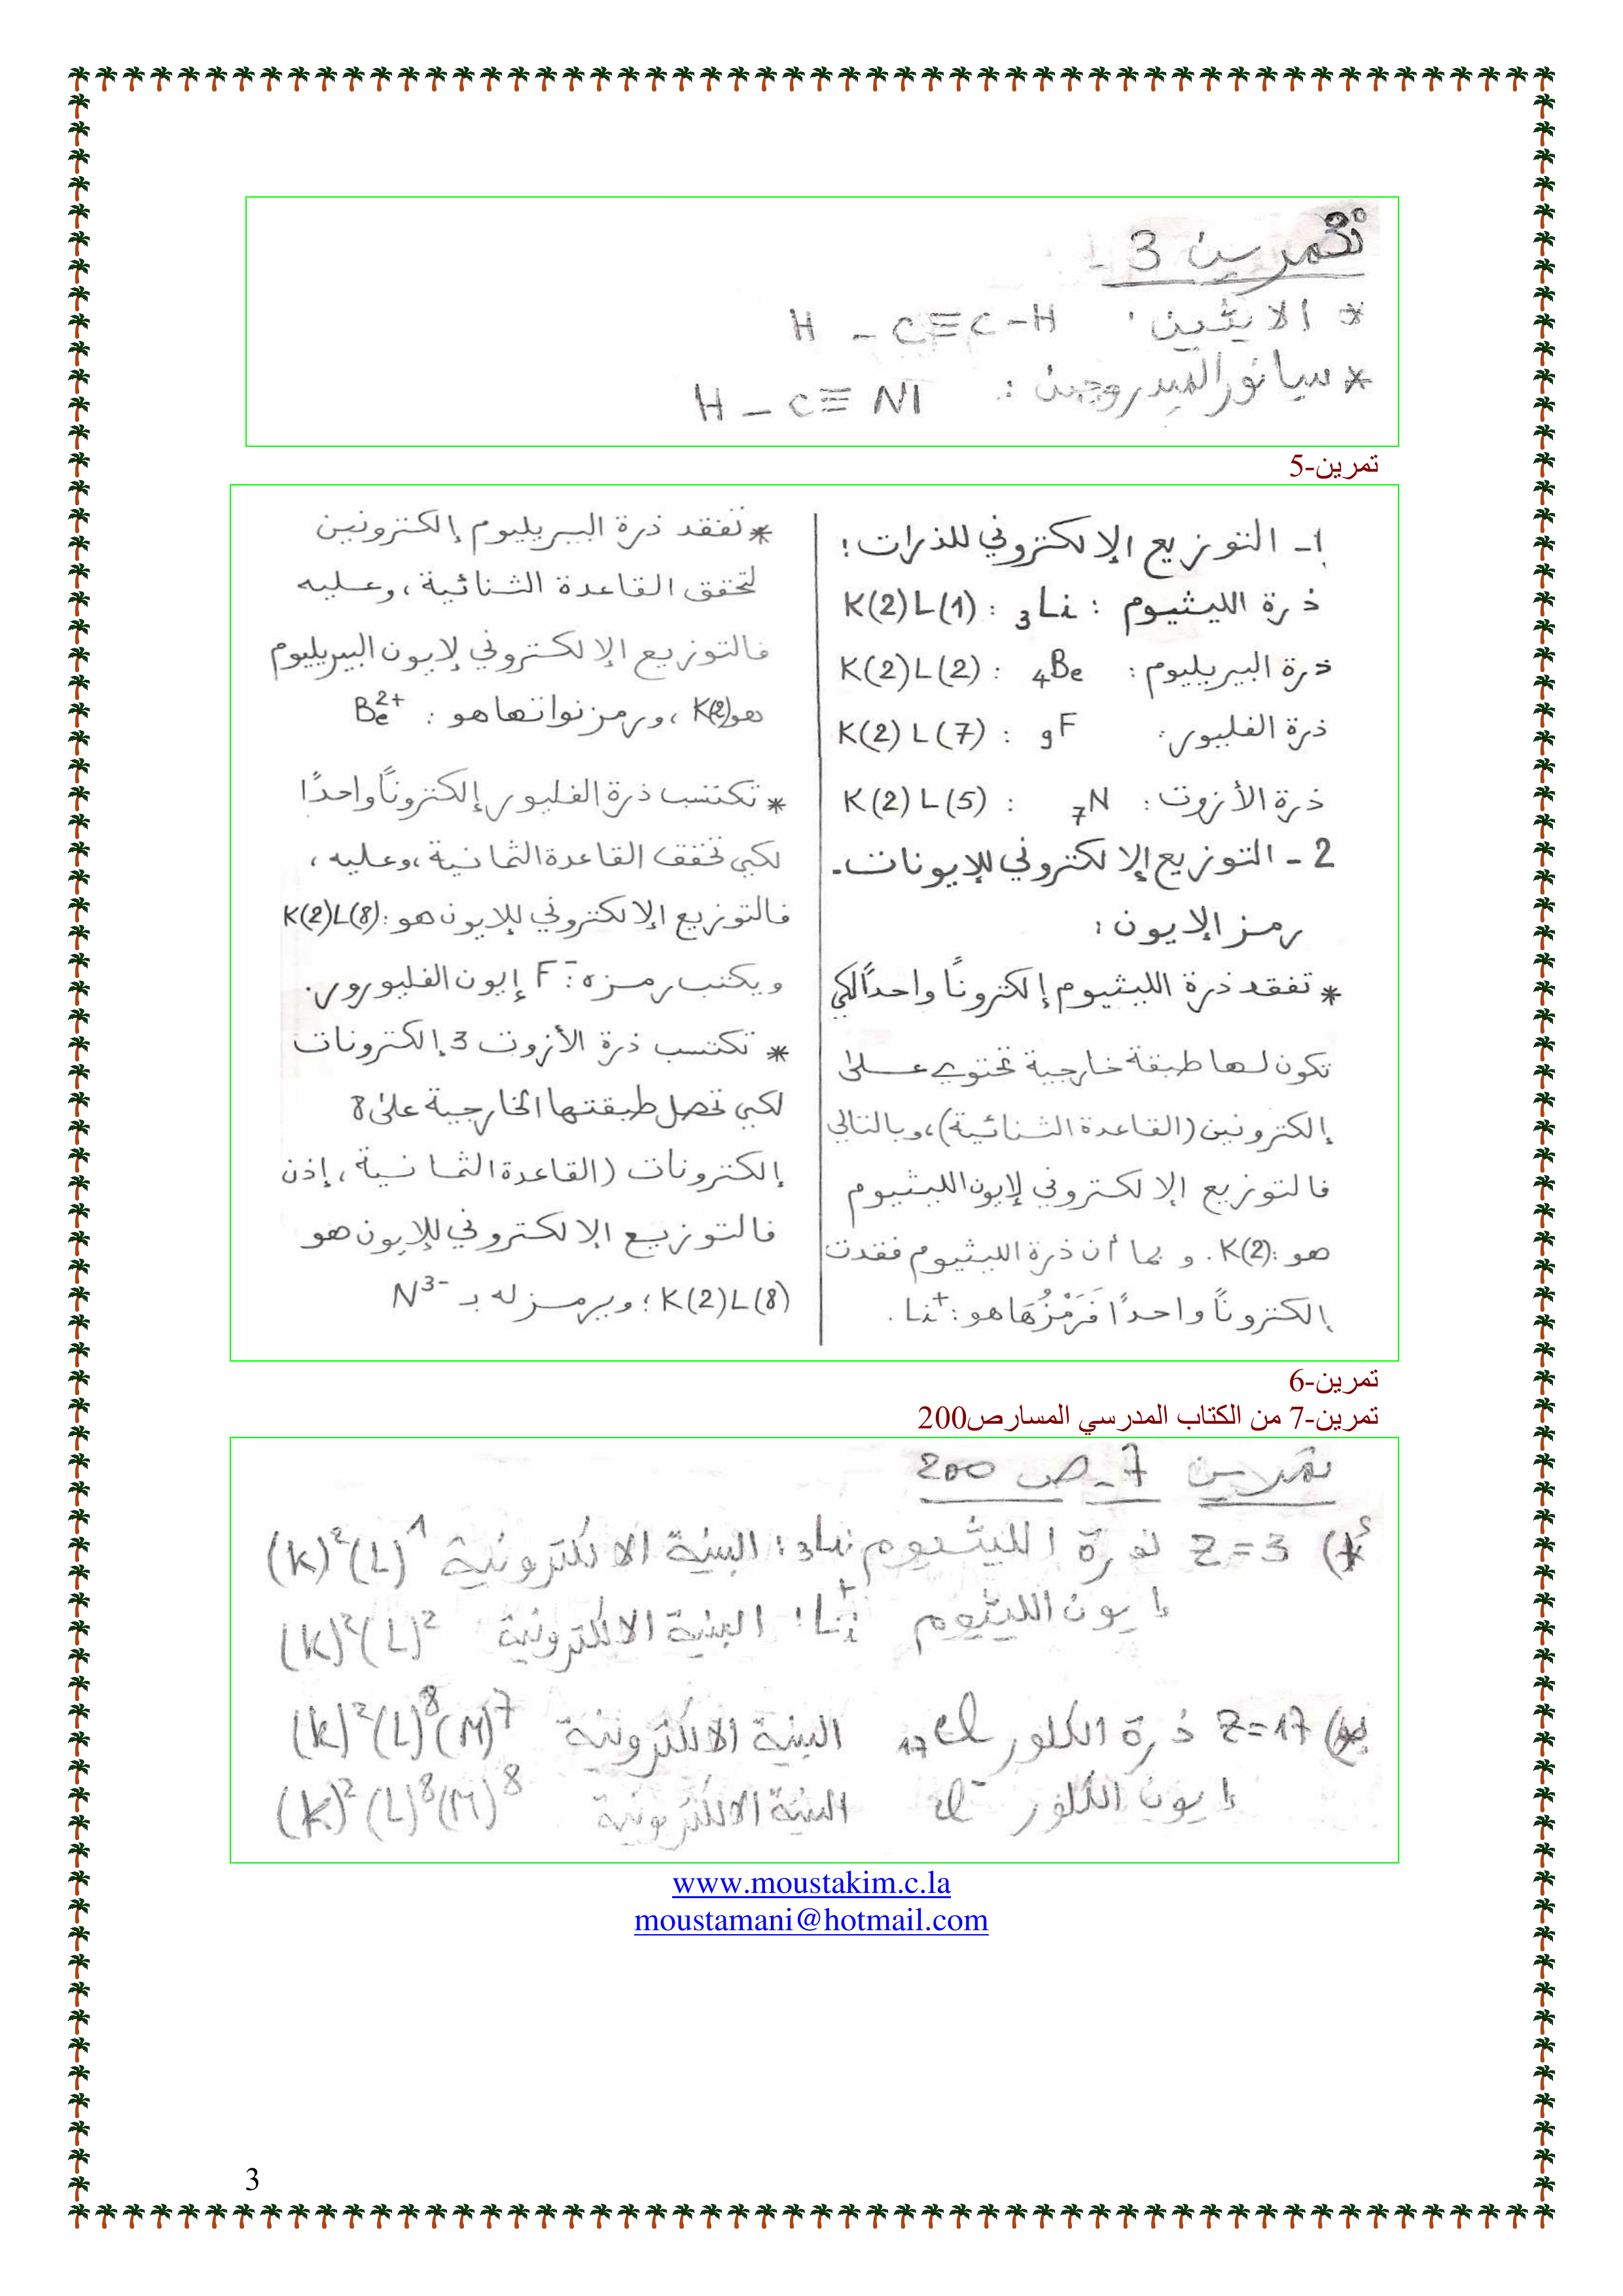 تمرين 3 -
* الايثين : H - C≡C-H
* سيانور الهيدروجين : H - C≡NI
تمرين-5
1- التوزيع الإلكتروني للذرات :
ذرة الليثيوم : ₃Li : K(2)L(1)
ذرة البيريليوم : ₄Be : K(2)L(2)
ذرة الفليور : ₉F : K(2)L(7)
ذرة الأزوت : ₇N : K(2)L(5)
2 - التوزيع الإلكتروني للإيونات.
رمز الإيون :
* تفقد ذرة الليثيوم إلكترونًا واحدًا لكي
تكون لها طبقة خارجية تحتوي على
إلكترونين (القاعدة الثنائية)، وبالتالي
فالتوزيع الإلكتروني لإيون الليثيوم
هو : K(2). و بما أن ذرة الليثيوم فقدت
إلكترونًا واحدًا فَرَمْزُهَا هو : Li⁺.
* تفقد ذرة البيريليوم إلكترونين
لتحقق القاعدة الثنائية ، وعليه
فالتوزيع الإلكتروني لإيون البيريليوم
هو K(2) ، ورمز نواتها هو : Be²⁺
* تكتسب ذرة الفليور إلكترونًا واحدًا
لكي تحقق القاعدة الثمانية ، وعليه ،
فالتوزيع الإلكتروني للإيون هو : K(2)L(8)
ويكتب رمزه : F⁻ إيون الفليورور.
* تكتسب ذرة الأزوت 3 إلكترونات
لكي تحصل طبقتها الخارجية على 8
إلكترونات (القاعدة الثمانية ، إذن
فالتوزيع الإلكتروني للإيون هو
K(2)L(8) ؛ ويرمز له بـ N³⁻
تمرين-6
تمرين-7 من الكتاب المدرسي المسارص200
تمرين 7 - ص 200
أ) Z=3 ذرة الليثيوم ₃Li : البنية الالكترونية (K)²(L)¹
إيون الليثيوم Li⁺ : البنية الالكترونية (K)²(L)²
ب) Z=17 ذرة الكلور ₁₇Cl البنية الالكترونية (K)²(L)⁸(M)⁷
إيون الكلور Cl⁻ البنية الالكترونية (K)²(L)⁸(M)⁸
www.moustakim.c.la
moustamani@hotmail.com
3